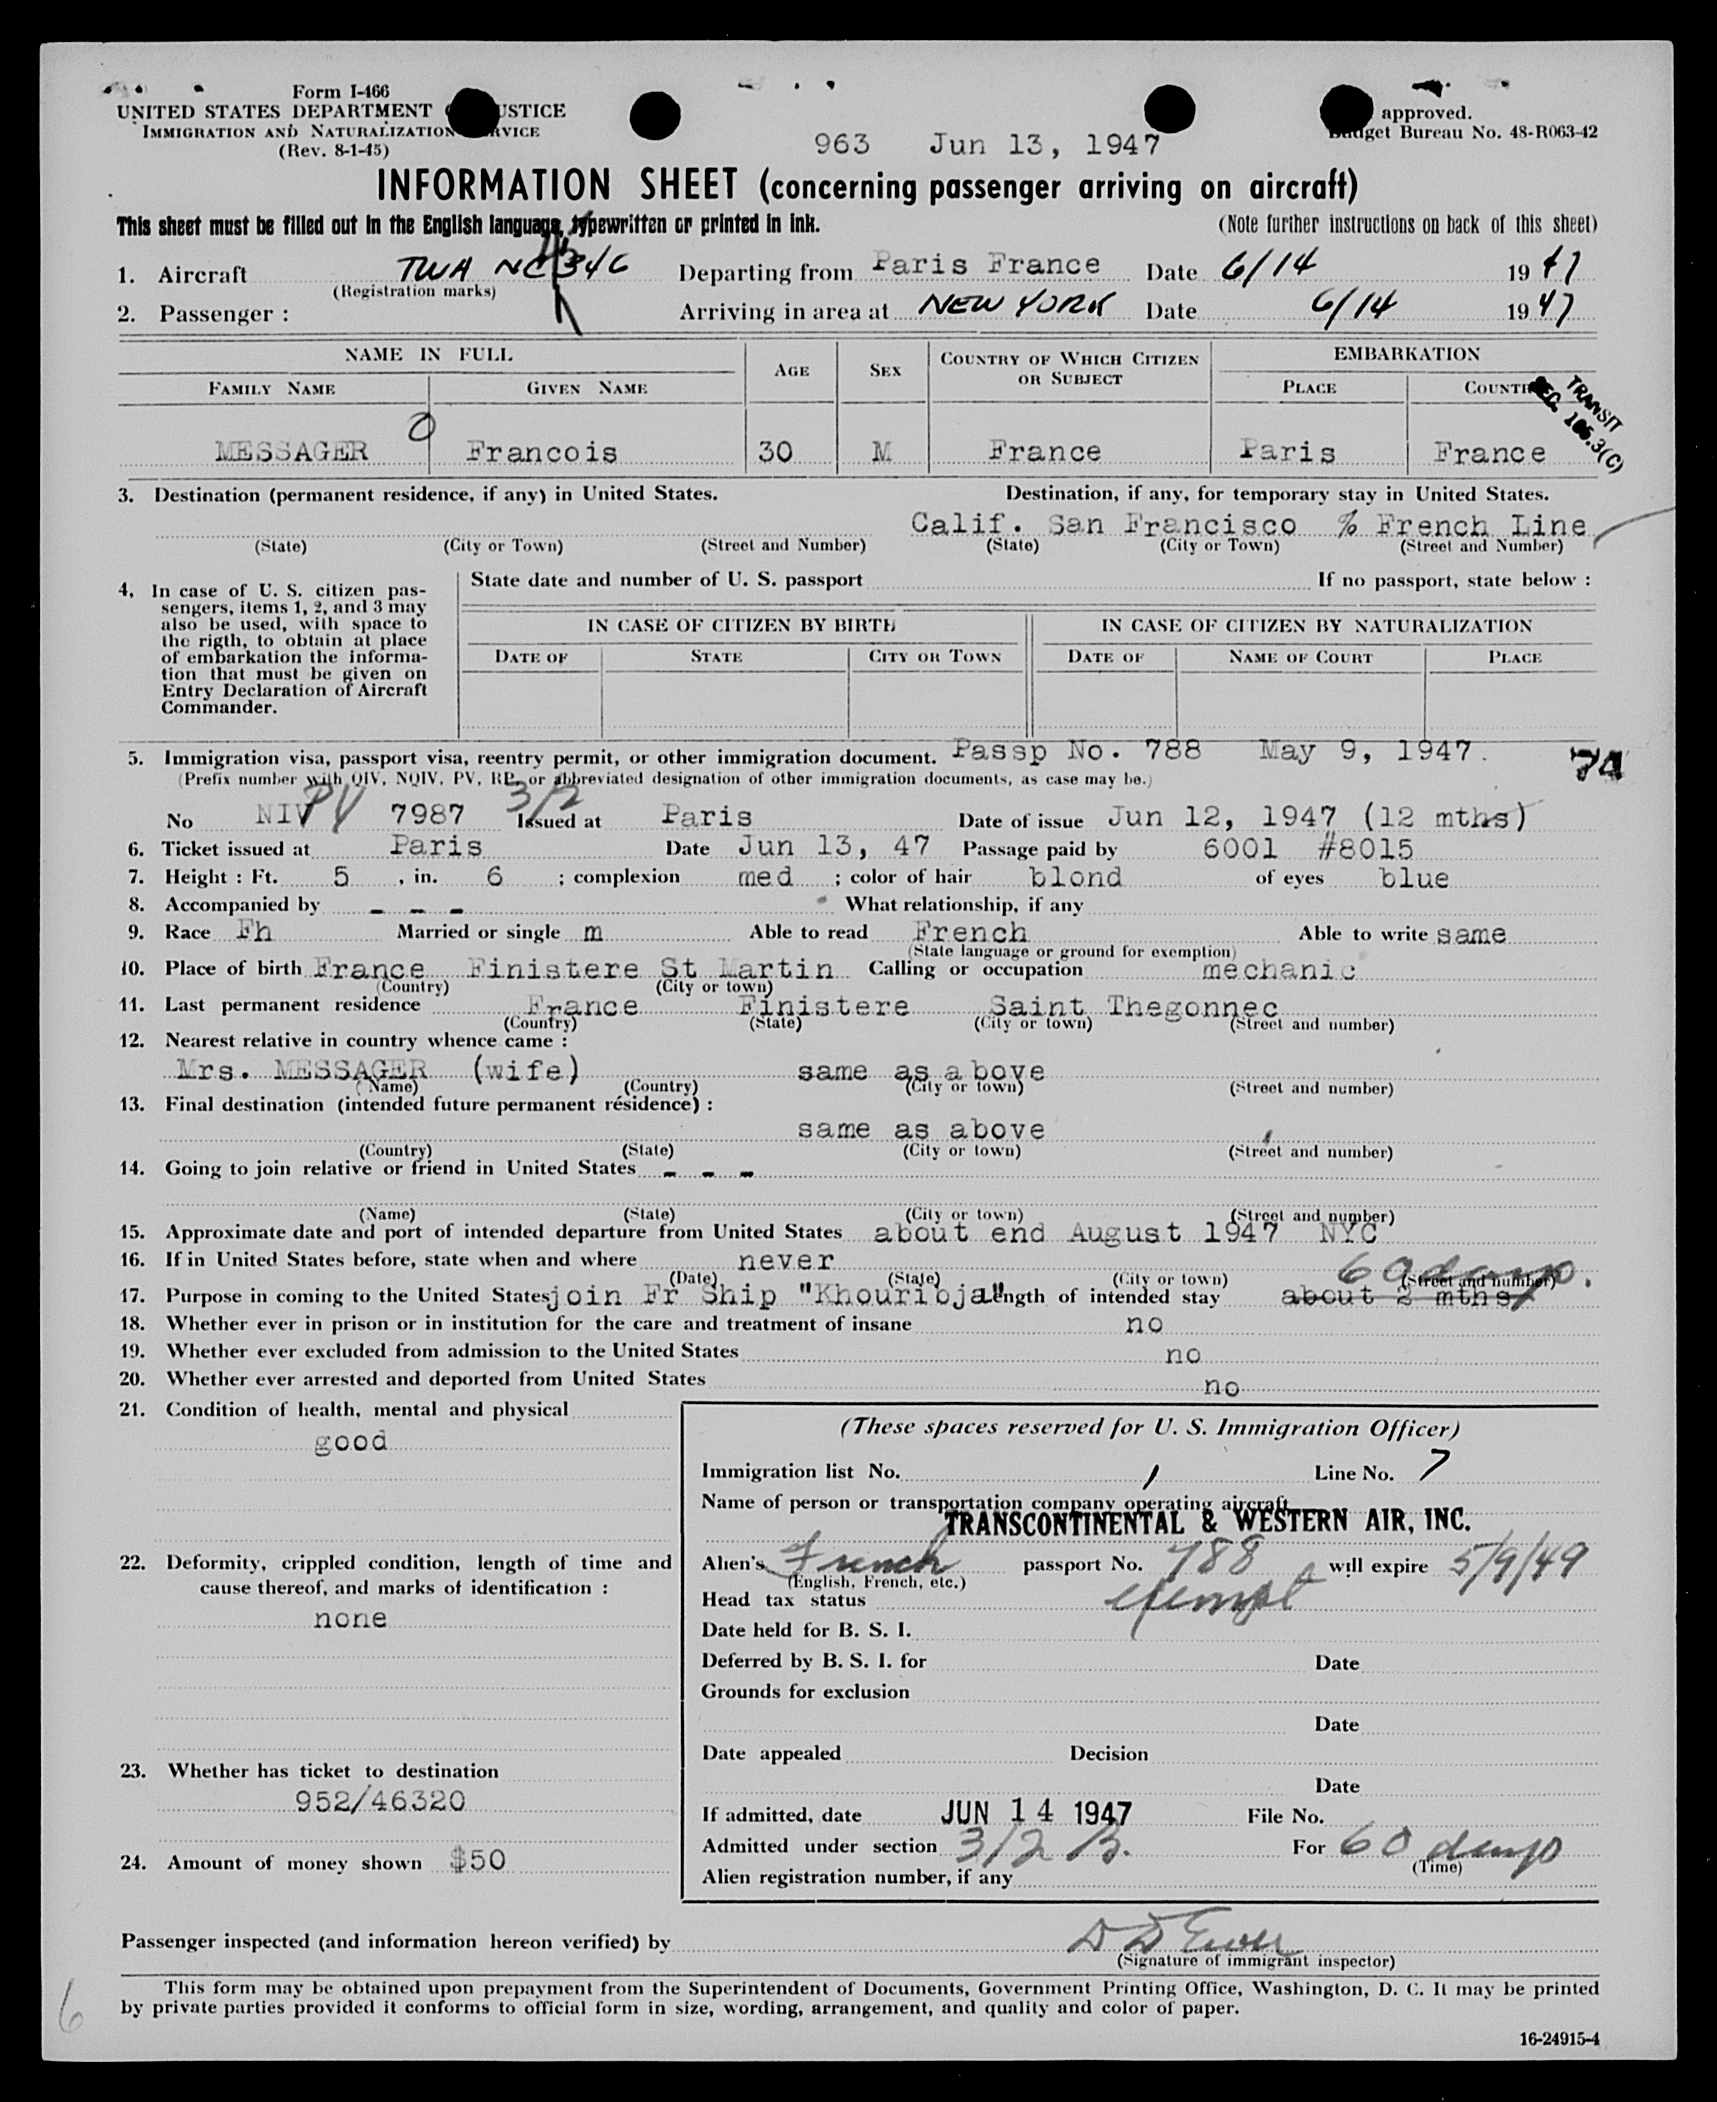 Form I-466
UNITED STATES DEPARTMENT USTICE
IMMIGRATION AND NATURALIZATION RVICE
(Rev. 8-1-45)
approved.
Budget Bureau No. 48-R063-42
963 Jun 13, 1947
INFORMATION SHEET (concerning passenger arriving on aircraft)
This sheet must be filled out in the English language, typewritten or printed in ink.
(Note further instructions on back of this sheet)
1. Aircraft TWA NC 346 Departing from Paris France Date 6/14 1947
(Registration marks)
2. Passenger : Arriving in area at NEW YORK Date 6/14 1947
NAME IN FULL AGE SEX COUNTRY OF WHICH CITIZEN OR SUBJECT EMBARKATION
FAMILY NAME GIVEN NAME PLACE COUNTRY
TRANSIT
SEC. 106.3(C)
MESSAGER O Francois 30 M France Paris France
3. Destination (permanent residence, if any) in United States. Destination, if any, for temporary stay in United States.
Calif. San Francisco % French Line
(State) (City or Town) (Street and Number) (State) (City or Town) (Street and Number)
4. In case of U. S. citizen pas-
sengers, items 1, 2, and 3 may
also be used, with space to
the rigth, to obtain at place
of embarkation the informa-
tion that must be given on
Entry Declaration of Aircraft
Commander.
State date and number of U. S. passport If no passport, state below :
IN CASE OF CITIZEN BY BIRTH IN CASE OF CITIZEN BY NATURALIZATION
DATE OF STATE CITY OR TOWN DATE OF NAME OF COURT PLACE
5. Immigration visa, passport visa, reentry permit, or other immigration document. Passp No. 788 May 9, 1947. 74
(Prefix number with QIV, NQIV, PV, RP, or abbreviated designation of other immigration documents, as case may be.)
No NIV PV 7987 3/2 Issued at Paris Date of issue Jun 12, 1947 (12 mths)
6. Ticket issued at Paris Date Jun 13, 47 Passage paid by 6001 #8015
7. Height : Ft. 5 , in. 6 ; complexion med ; color of hair blond of eyes blue
8. Accompanied by - - - What relationship, if any
9. Race Fh Married or single m Able to read French Able to write same
(State language or ground for exemption)
10. Place of birth France Finistere St Martin Calling or occupation mechanic
(Country) (City or town)
11. Last permanent residence France Finistere Saint Thegonnec
(Country) (State) (City or town) (Street and number)
12. Nearest relative in country whence came :
Mrs. MESSAGER (wife) same as above
(Name) (Country) (City or town) (Street and number)
13. Final destination (intended future permanent résidence) :
same as above
(Country) (State) (City or town) (Street and number)
14. Going to join relative or friend in United States - - -
(Name) (State) (City or town) (Street and number)
15. Approximate date and port of intended departure from United States about end August 1947 NYC
16. If in United States before, state when and where never
(Date) (State) (City or town) (Street and number)
60 days.
17. Purpose in coming to the United States join Fr Ship "Khouribja" Length of intended stay about 2 mths
18. Whether ever in prison or in institution for the care and treatment of insane no
19. Whether ever excluded from admission to the United States no
20. Whether ever arrested and deported from United States no
21. Condition of health, mental and physical
good
22. Deformity, crippled condition, length of time and
cause thereof, and marks of identification :
none
23. Whether has ticket to destination
952/46320
24. Amount of money shown $50
(These spaces reserved for U. S. Immigration Officer)
Immigration list No. 1 Line No. 7
Name of person or transportation company operating aircraft
TRANSCONTINENTAL & WESTERN AIR, INC.
Alien's French passport No. 788 will expire 5/9/49
(English, French, etc.)
Head tax status exempt
Date held for B. S. I.
Deferred by B. S. I. for Date
Grounds for exclusion
Date
Date appealed Decision
Date
If admitted, date JUN 14 1947 File No.
Admitted under section 3/2 B. For 60 days
(Time)
Alien registration number, if any
Passenger inspected (and information hereon verified) by
(Signature of immigrant inspector)
This form may be obtained upon prepayment from the Superintendent of Documents, Government Printing Office, Washington, D. C. It may be printed
by private parties provided it conforms to official form in size, wording, arrangement, and quality and color of paper.
6
16-24915-4